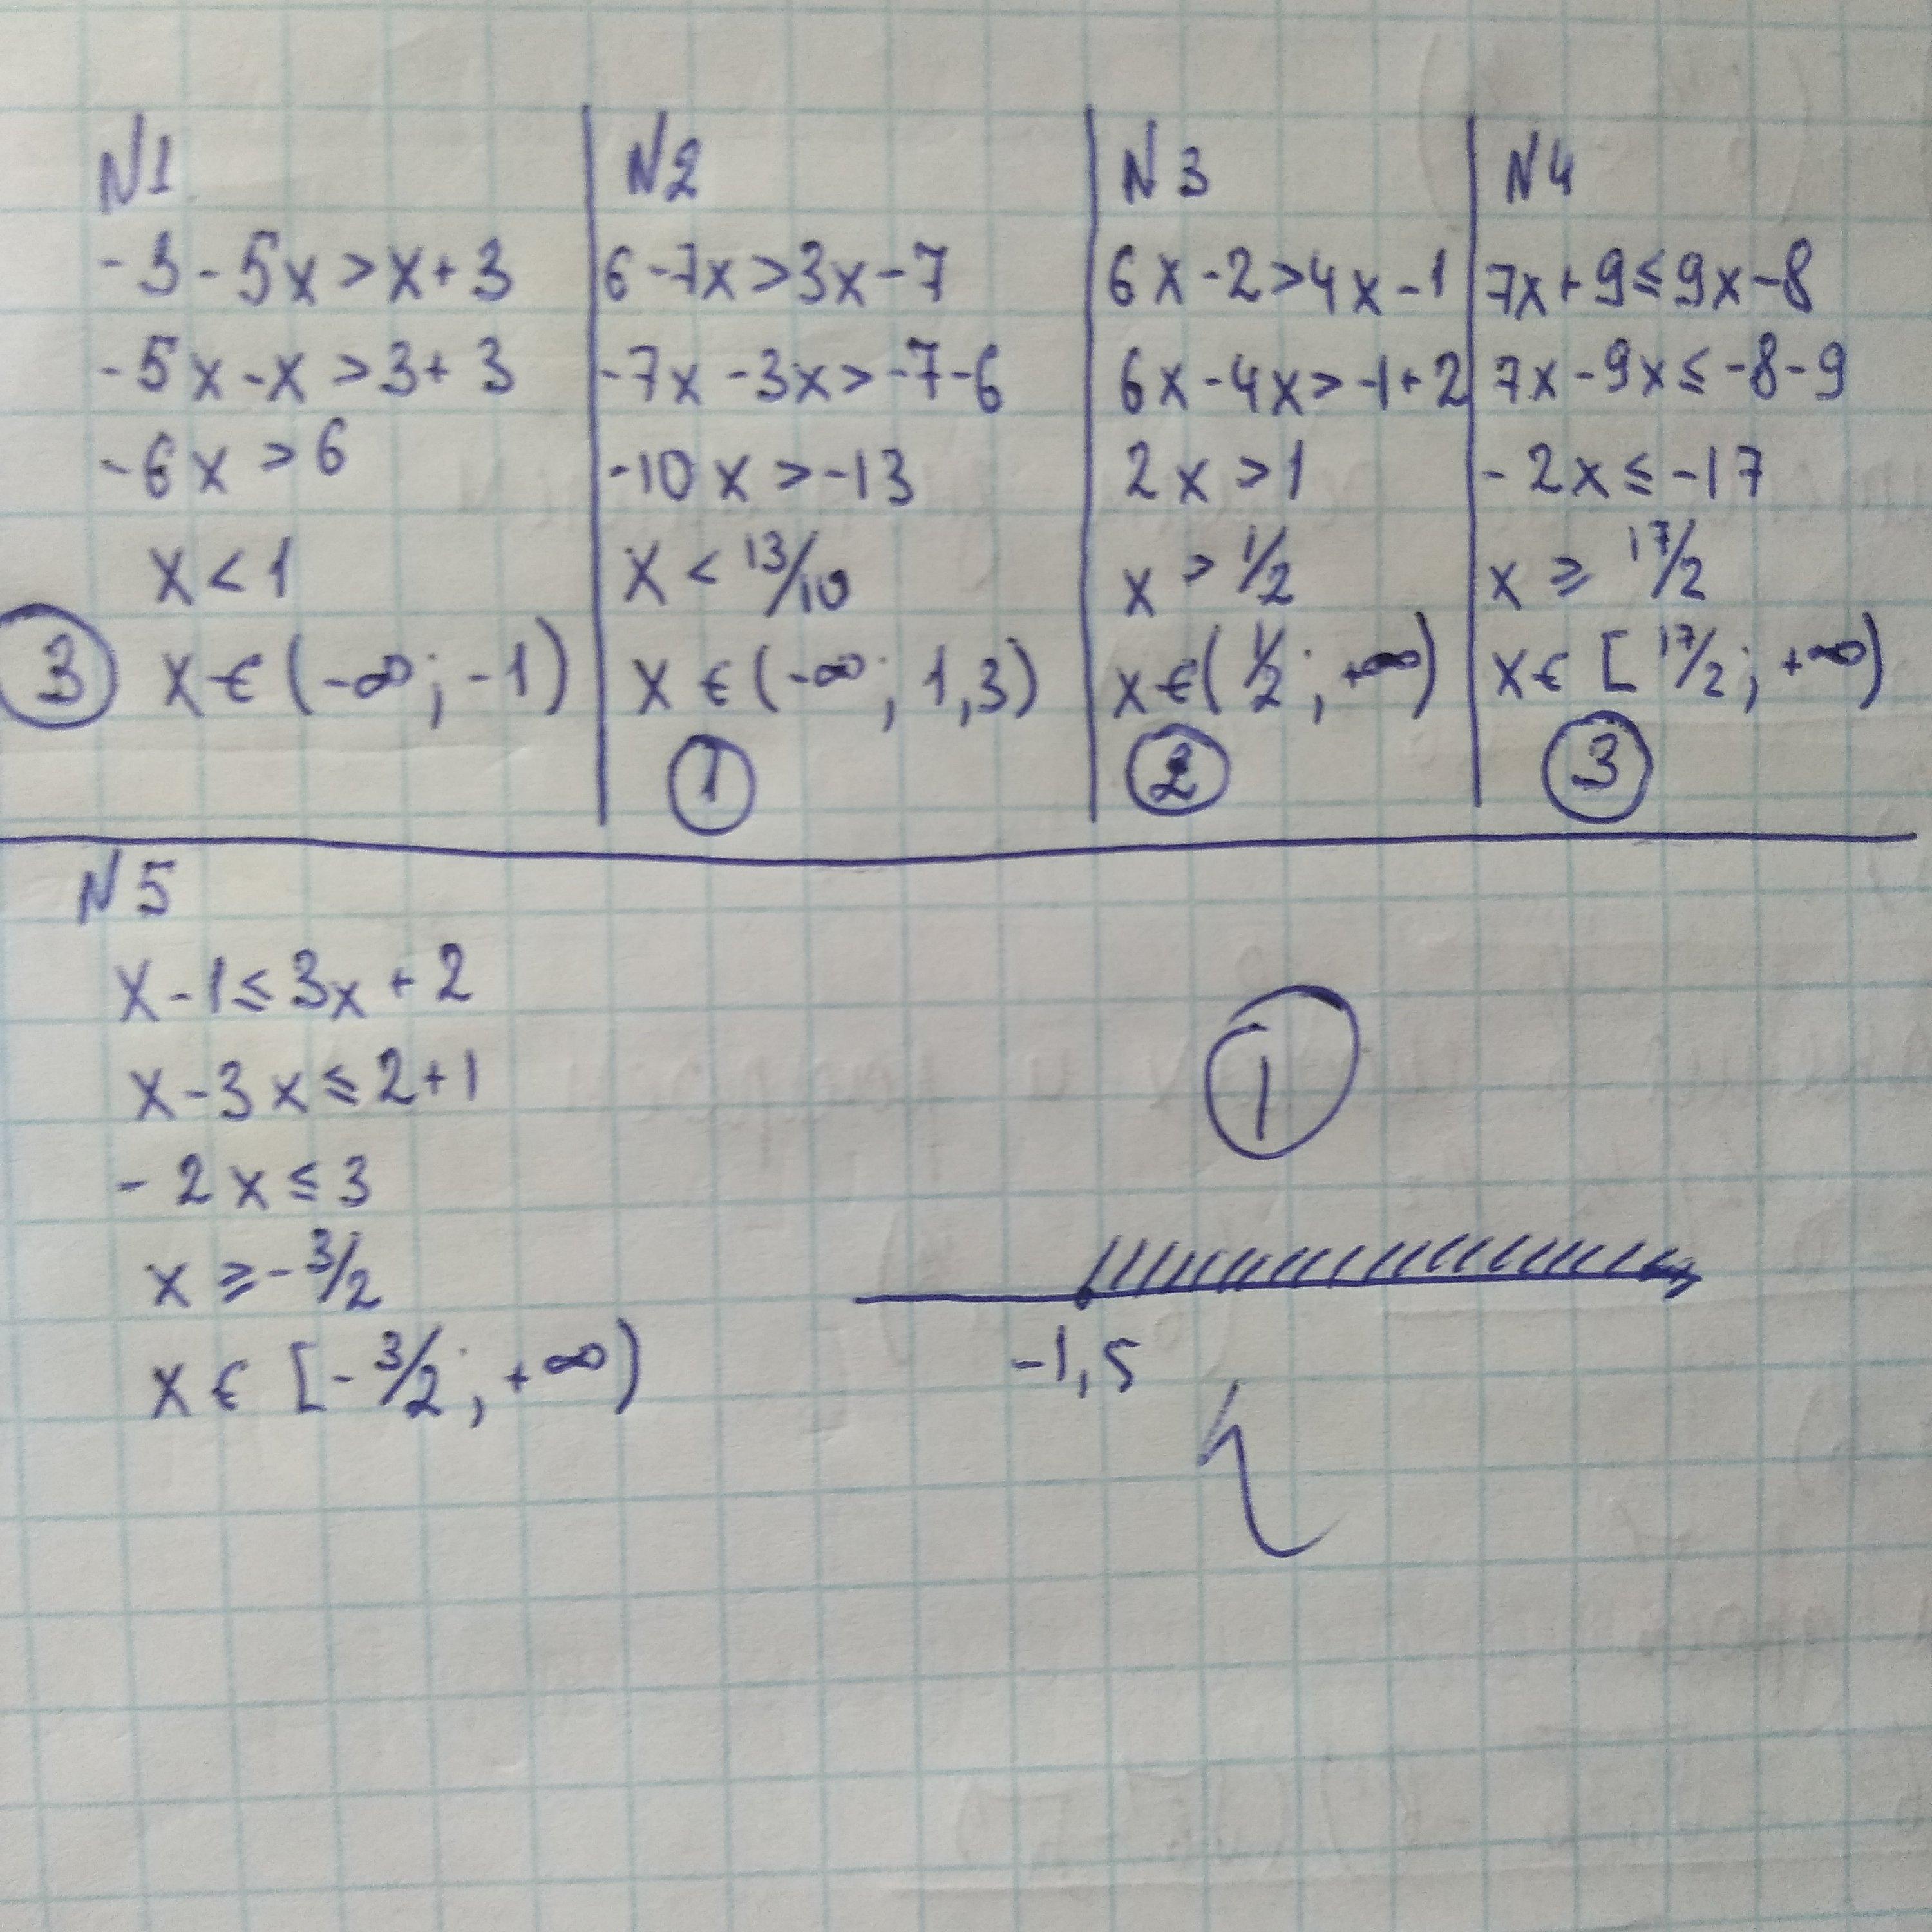 N1
-3-5x>x+3
-5x-x>3+3
-6x>6
x<1
3 x∈(-∞;-1)
N2
6-7x>3x-7
-7x-3x>-7-6
-10x>-13
x<13/10
x∈(-∞; 1,3)
1
N3
6x-2>4x-1
6x-4x>-1+2
2x>1
x>1/2
x∈(1/2;+∞)
2
N4
7x+9≤9x-8
7x-9x≤-8-9
-2x≤-17
x≥17/2
x∈[17/2;+∞)
3
N5
x-1≤3x+2
x-3x≤2+1
-2x≤3
x≥-3/2
x∈[-3/2;+∞)
1
-1,5